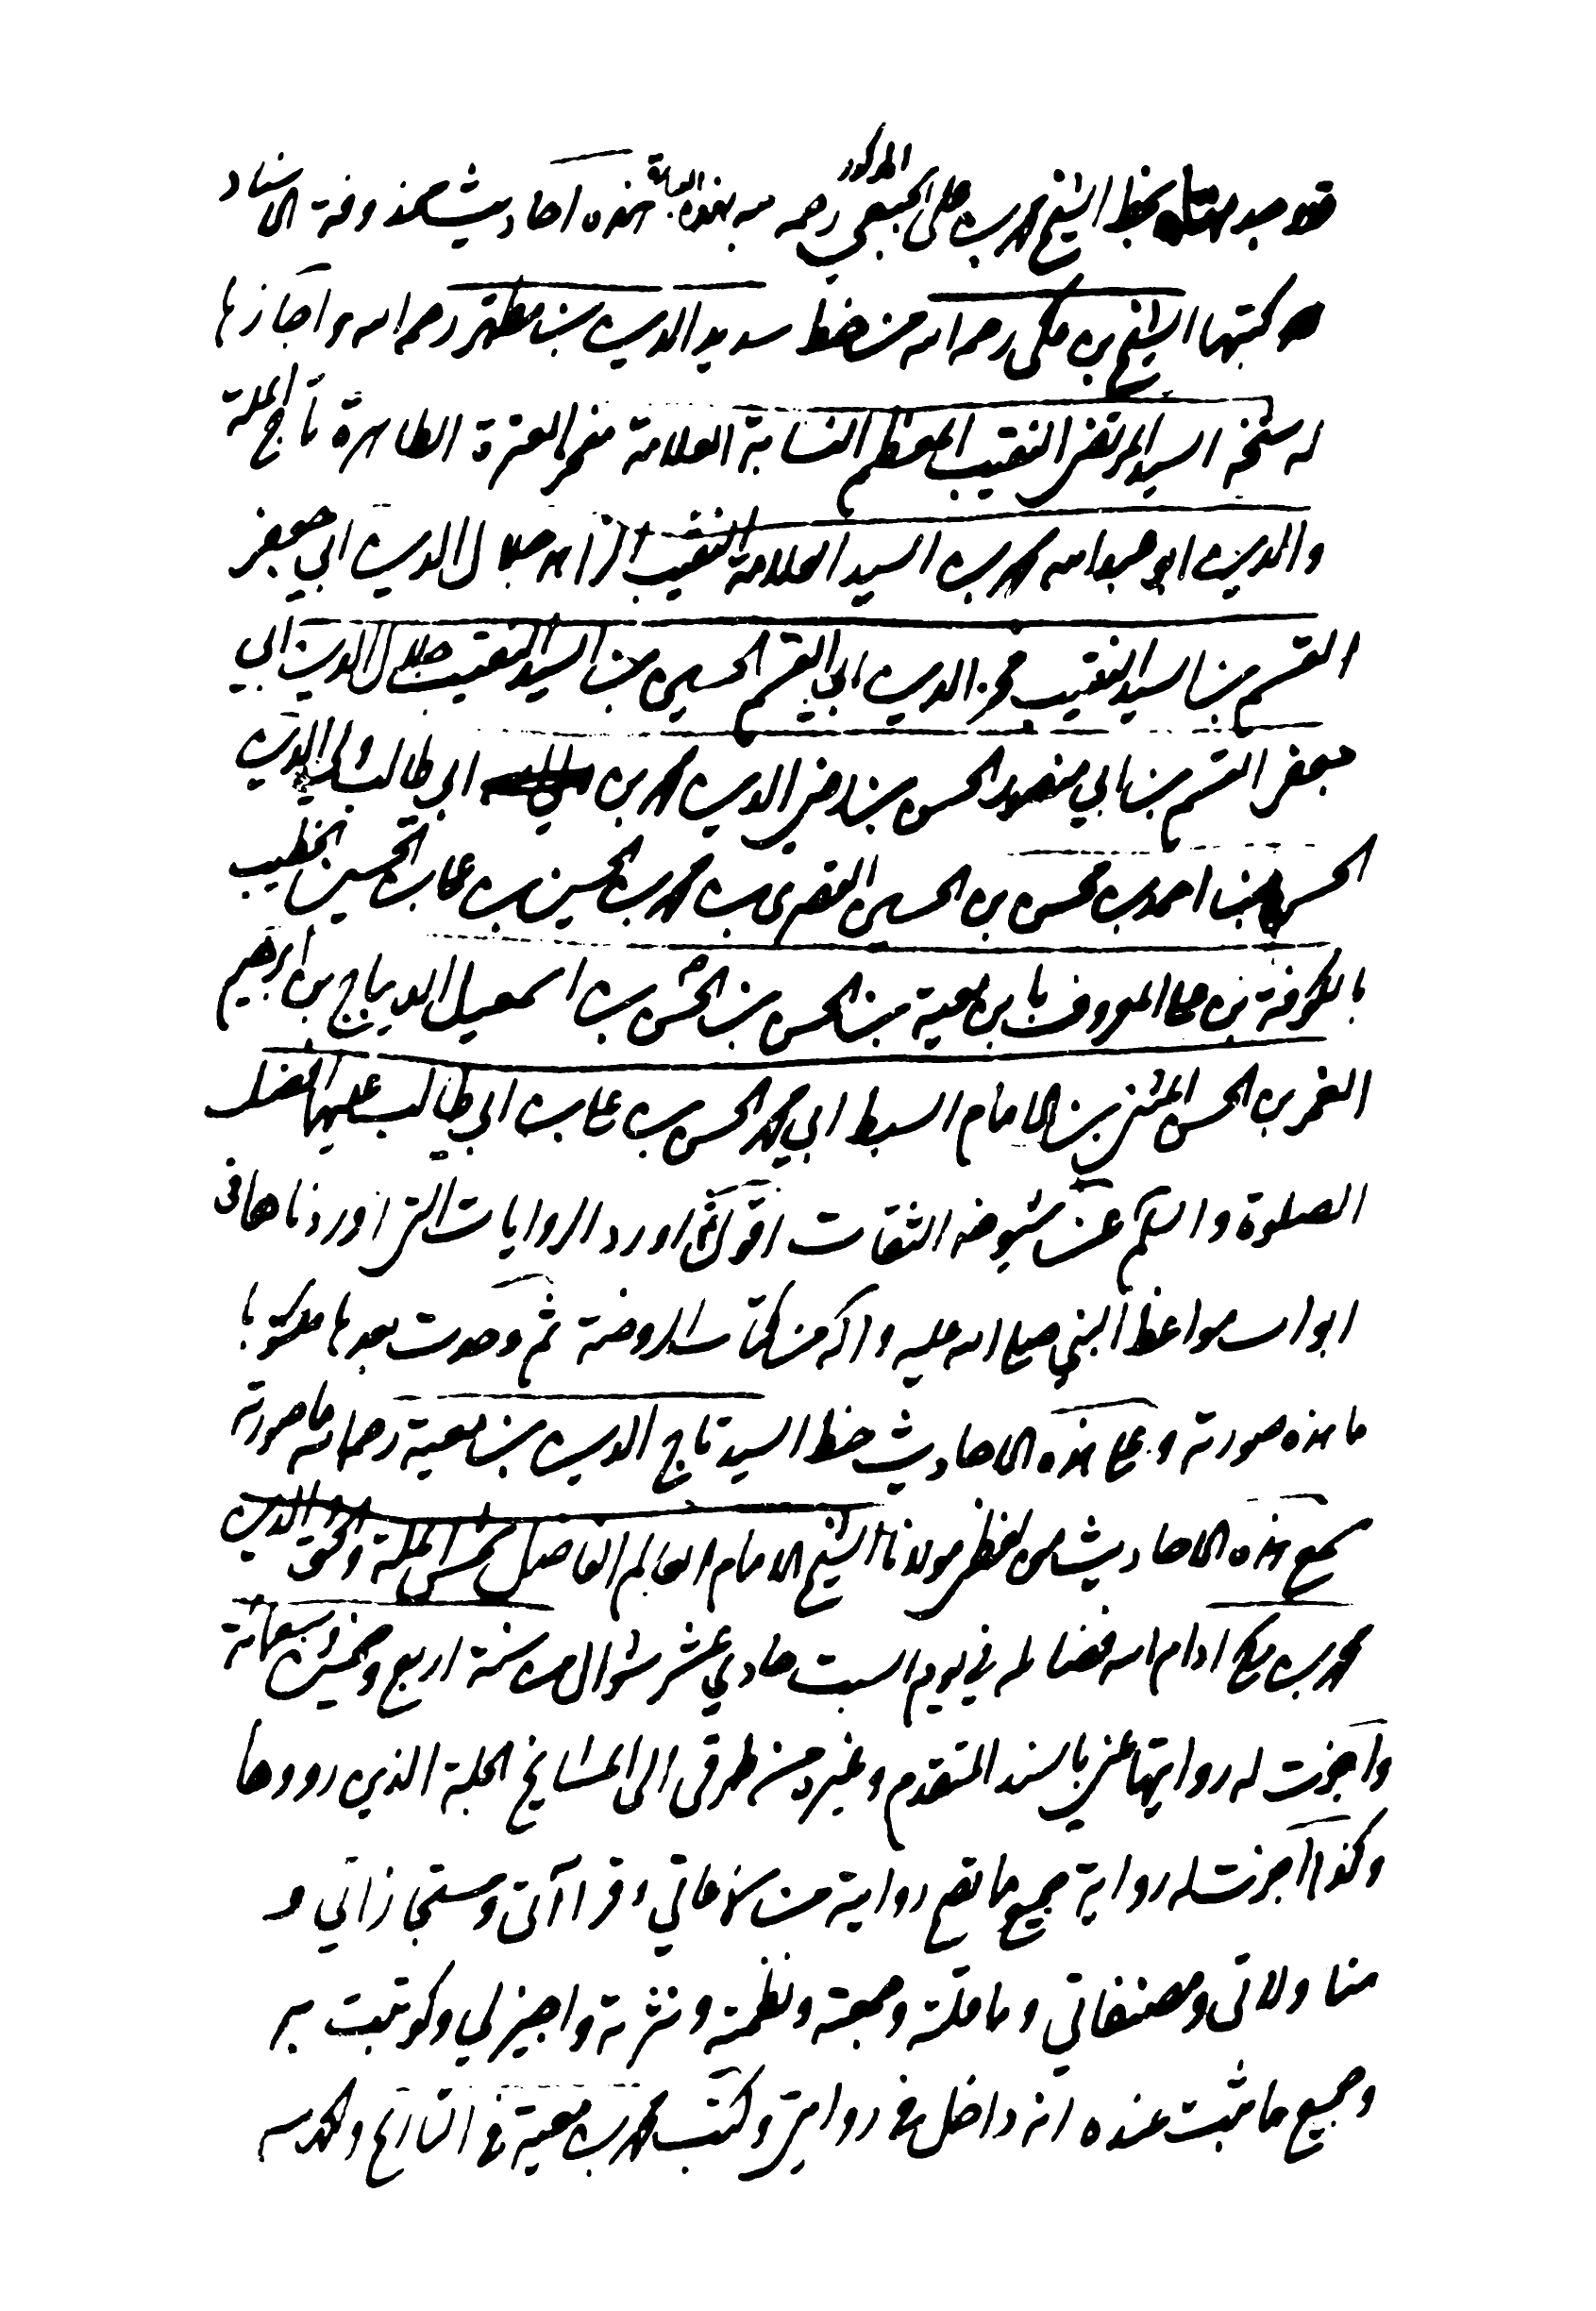 قد وجد بخط الشيخ محمد بن علي الجبعي المذكور رحمه بهذه العبارة هذه احاديث محذوفة الاسناد
كتبها الشيخ بن مكي رحمه الله من خط سديد الدين بن مطهر رحمه الله واجازها
له شيخه السيد المرتضى النقيب المعظم النسابة العلامة مفخر العترة الطاهرة تاج الملة
والدين ابو عبد الله محمد بن السيد العلامة النقيب الزاهد جلال الدين ابي جعفر
القسم بن السيد النقيب فخر الدين ابي القسم الحسين بن السيد النقيب جلال الدين ابي
جعفر القسم بن ابي منصور الحسن بن رضي الدين محمد بن ابي طالب ولي الدين
الحسن بن احمد بن محسن بن الحسين القصري بن محمد بن الحسين بن علي بن الحسين الخطيب
بالكوفة بن علي المعروف بابن معية بن الحسن بن الحسن بن اسمعيل الديباج بن ابرهيم
الغمر بن الحسن المثنى بن الامام السبط ابي محمد الحسن بن علي بن ابي طالب عليهما افضل
الصلوة والسلم عن شيوخه الثقات اقول ثم اورد الروايات التي اوردناها في
ابواب مواعظ النبي صلى الله عليه واله من كتاب الروضة ثم وجدت بعدها مكتوبا
ما هذه صورته وعلى هذه الاحاديث خط السيد تاج الدين بن معية رحمه الله ما صورته
سمع هذه الاحاديث من لفظي مولانا الشيخ الامام العالم الفاضل شمس الملة والحق والدين
محمد بن مكي ادام الله فضائله في يوم السبت حادي عشر شوال من سنة اربع وخمسين وسبعمائة
واجزت له روايتها عني بالسند المتقدم وغيره من طرقي الى المشايخ الجلة الذين رووها
وكذا اجزت له رواية جميع ما تصح روايته من سماعاتي وقراآتي ومستجازاتي و
مناولاتي ومصنفاتي وما قلته وجمعته ونظمته ونثرته واجيز لي وكوتبت به
وجميع ما ثبت عنده انه داخل في روايتي وكتب محمد بن معية في التاريخ والحمد لله